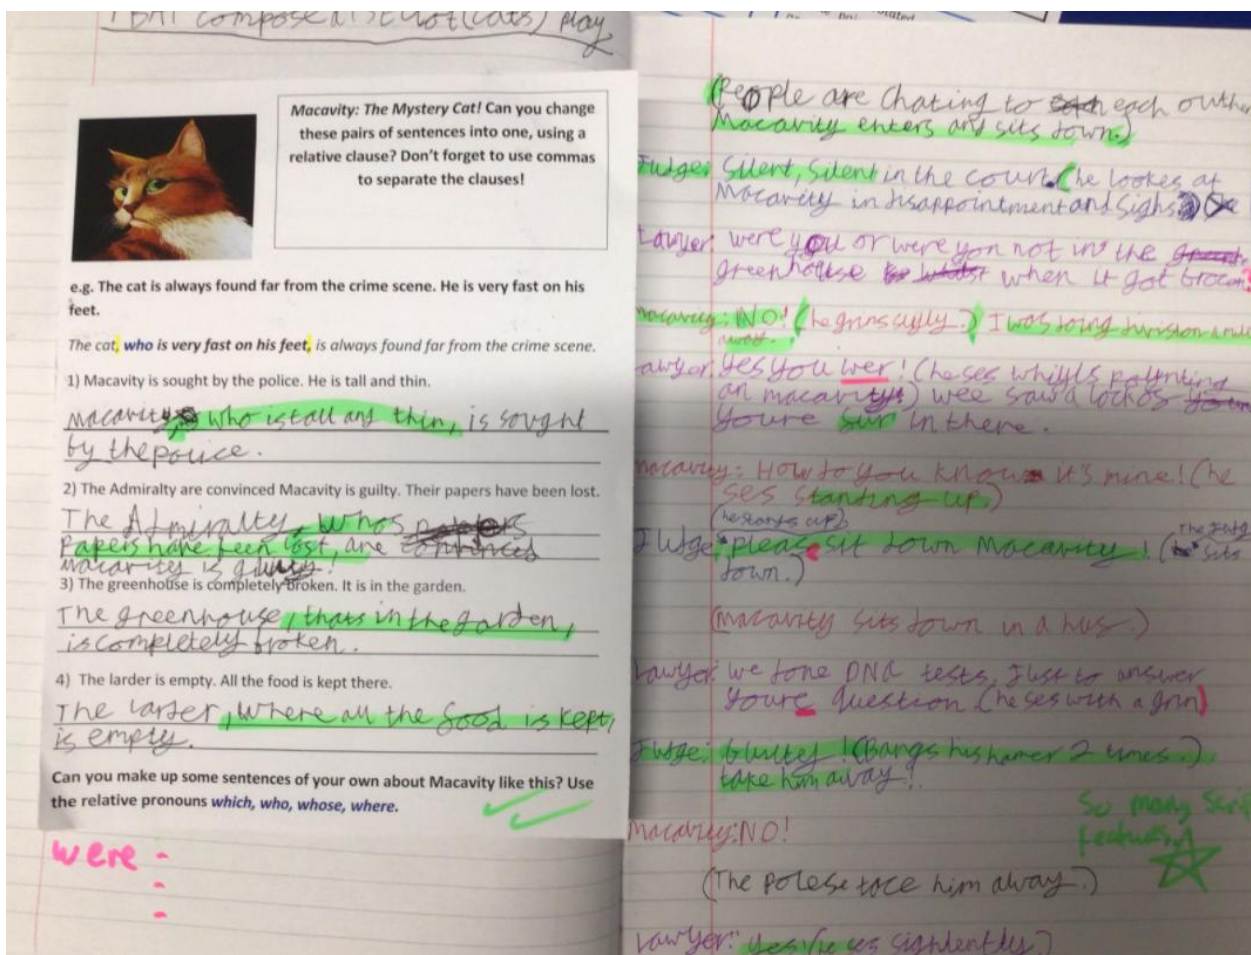 compose a
play
Macavity: The Mystery Cat! Can you change
these pairs of sentences into one, using a
relative clause? Don't forget to use commas
to separate the clauses!
e.g. The cat is always found far from the crime scene. He is very fast on his
feet.
The cat, who is very fast on his feet, is always found far from the crime scene.
1) Macavity is sought by the police. He is tall and thin.
Macavity, who is tall and thin, is sought
by the police.
2) The Admiralty are convinced Macavity is guilty. Their papers have been lost.
The Admiralty, whos
Papers have been lost, are convinced
macavity is guilty!
3) The greenhouse is completely broken. It is in the garden.
The greenhouse, thats in the garden,
is completely broken.
4) The larder is empty. All the food is kept there.
The larder, where all the food is kept,
is empty.
Can you make up some sentences of your own about Macavity like this? Use
the relative pronouns which, who, whose, where.
were -
-
-
(People are chating to each outher
Macavity enters and sits down.)
Judge: Silent, Silent in the court. (he lookes at
Macavity in disappointment and sighs.)
Lawyer: were you or were you not in the
greenhouse when it got brocen?
macavity: NO! (he grins slyly.) I was doing division a mile
away.
Lawyer: Yes you wer! (he ses whills poynting
an macavity!) wee saw a lochos
youre fur in there.
macavity: How do you know it's mine! (he
ses standing up.)
(he stands up)
Judge: pleas e sit down Macavity! (The Judg sits
down.)
(macavity sits down in a hus.)
Lawyer: we done DNA tests, Just to answer
youre question (he ses with a grin)
Judge: Guilty! (Bangs his hamer 2 times.)
take him away!
Macavity: NO!
So many
features
(The polese tace him away.)
Lawyer: yes! (he ses